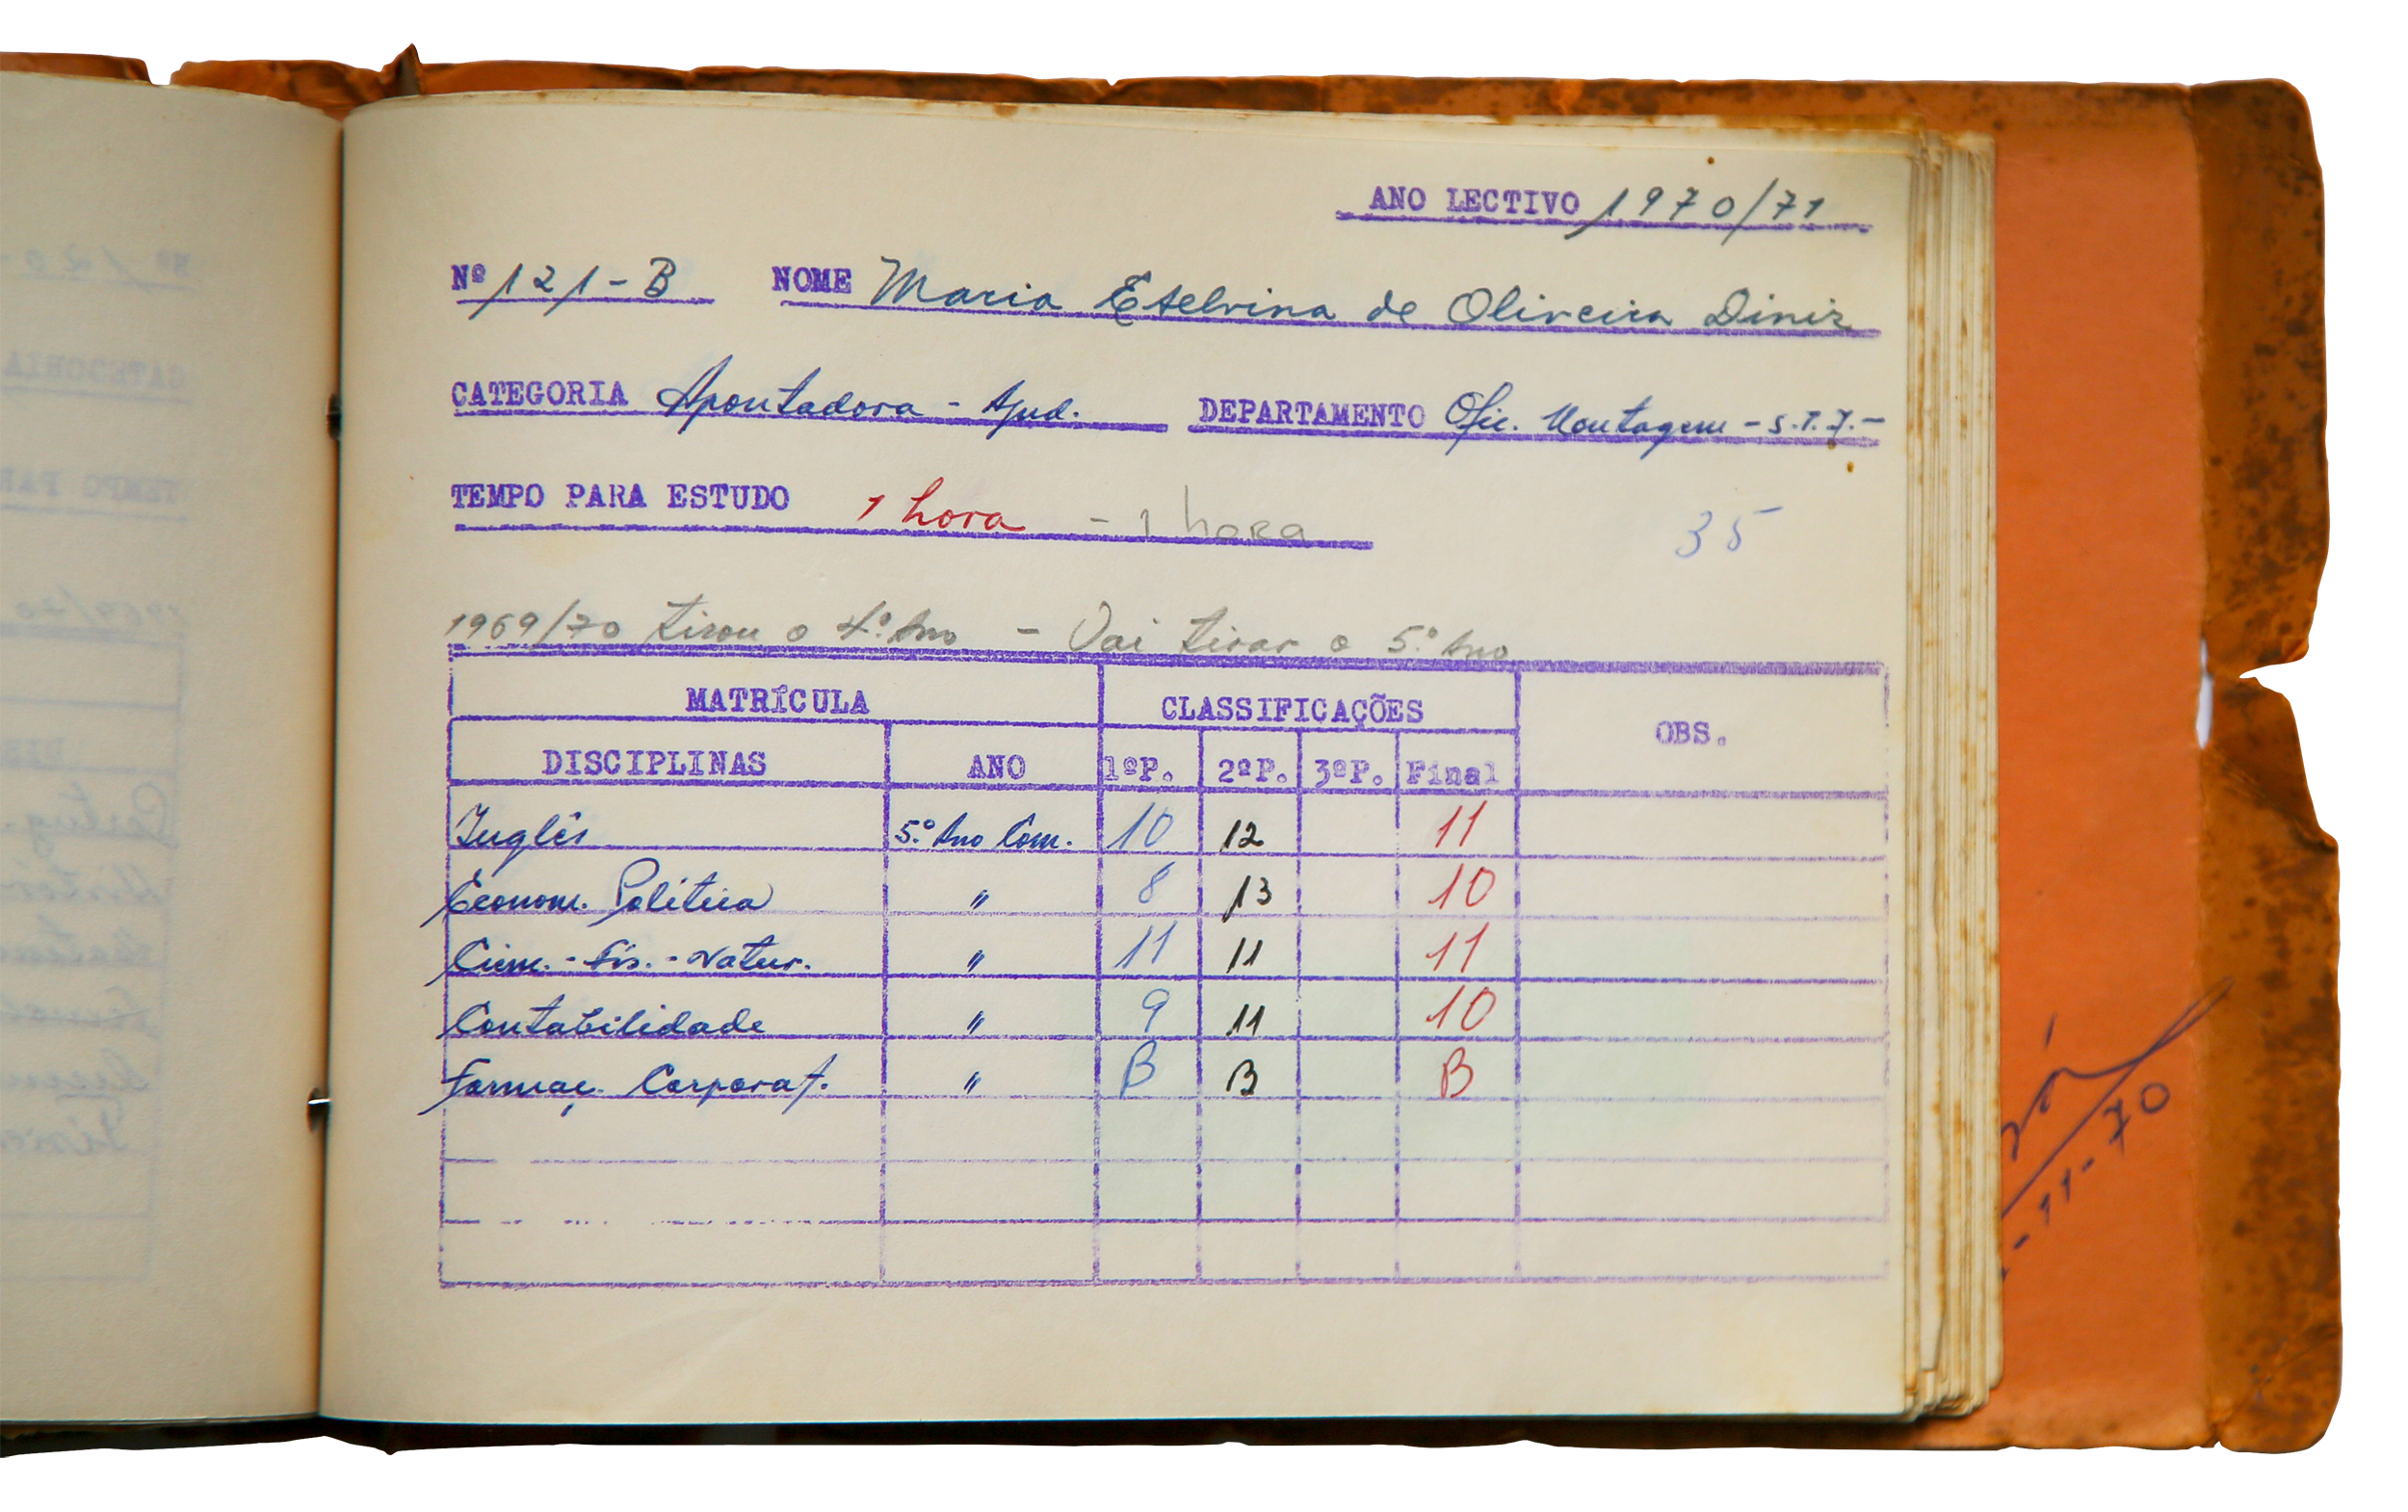 ANO LECTIVO 1970/71
Nº 121-B NOME Maria Etelvina de Oliveira Diniz
CATEGORIA Apontadora - Ajud. DEPARTAMENTO Ofic. Montagem - S.T.J.-
TEMPO PARA ESTUDO 1 hora - 1 hora
35
1969/70 tirou o 4.º Ano - Vai tirar o 5.º Ano
MATRÍCULA CLASSIFICAÇÕES OBS.
DISCIPLINAS ANO 1ºP. 2ºP. 3ºP. Final
Inglês 5.º Ano Com. 10 12 11
Econom. Politica " 8 13 10
Ciên. - Fís. - Natur. " 11 11 11
Contabilidade " 9 11 10
Formaç. Corporat. " B B B
-11-70
Nº 120-
CATEGORIA
TEMPO PAR
1969/70
DIS
Portug.